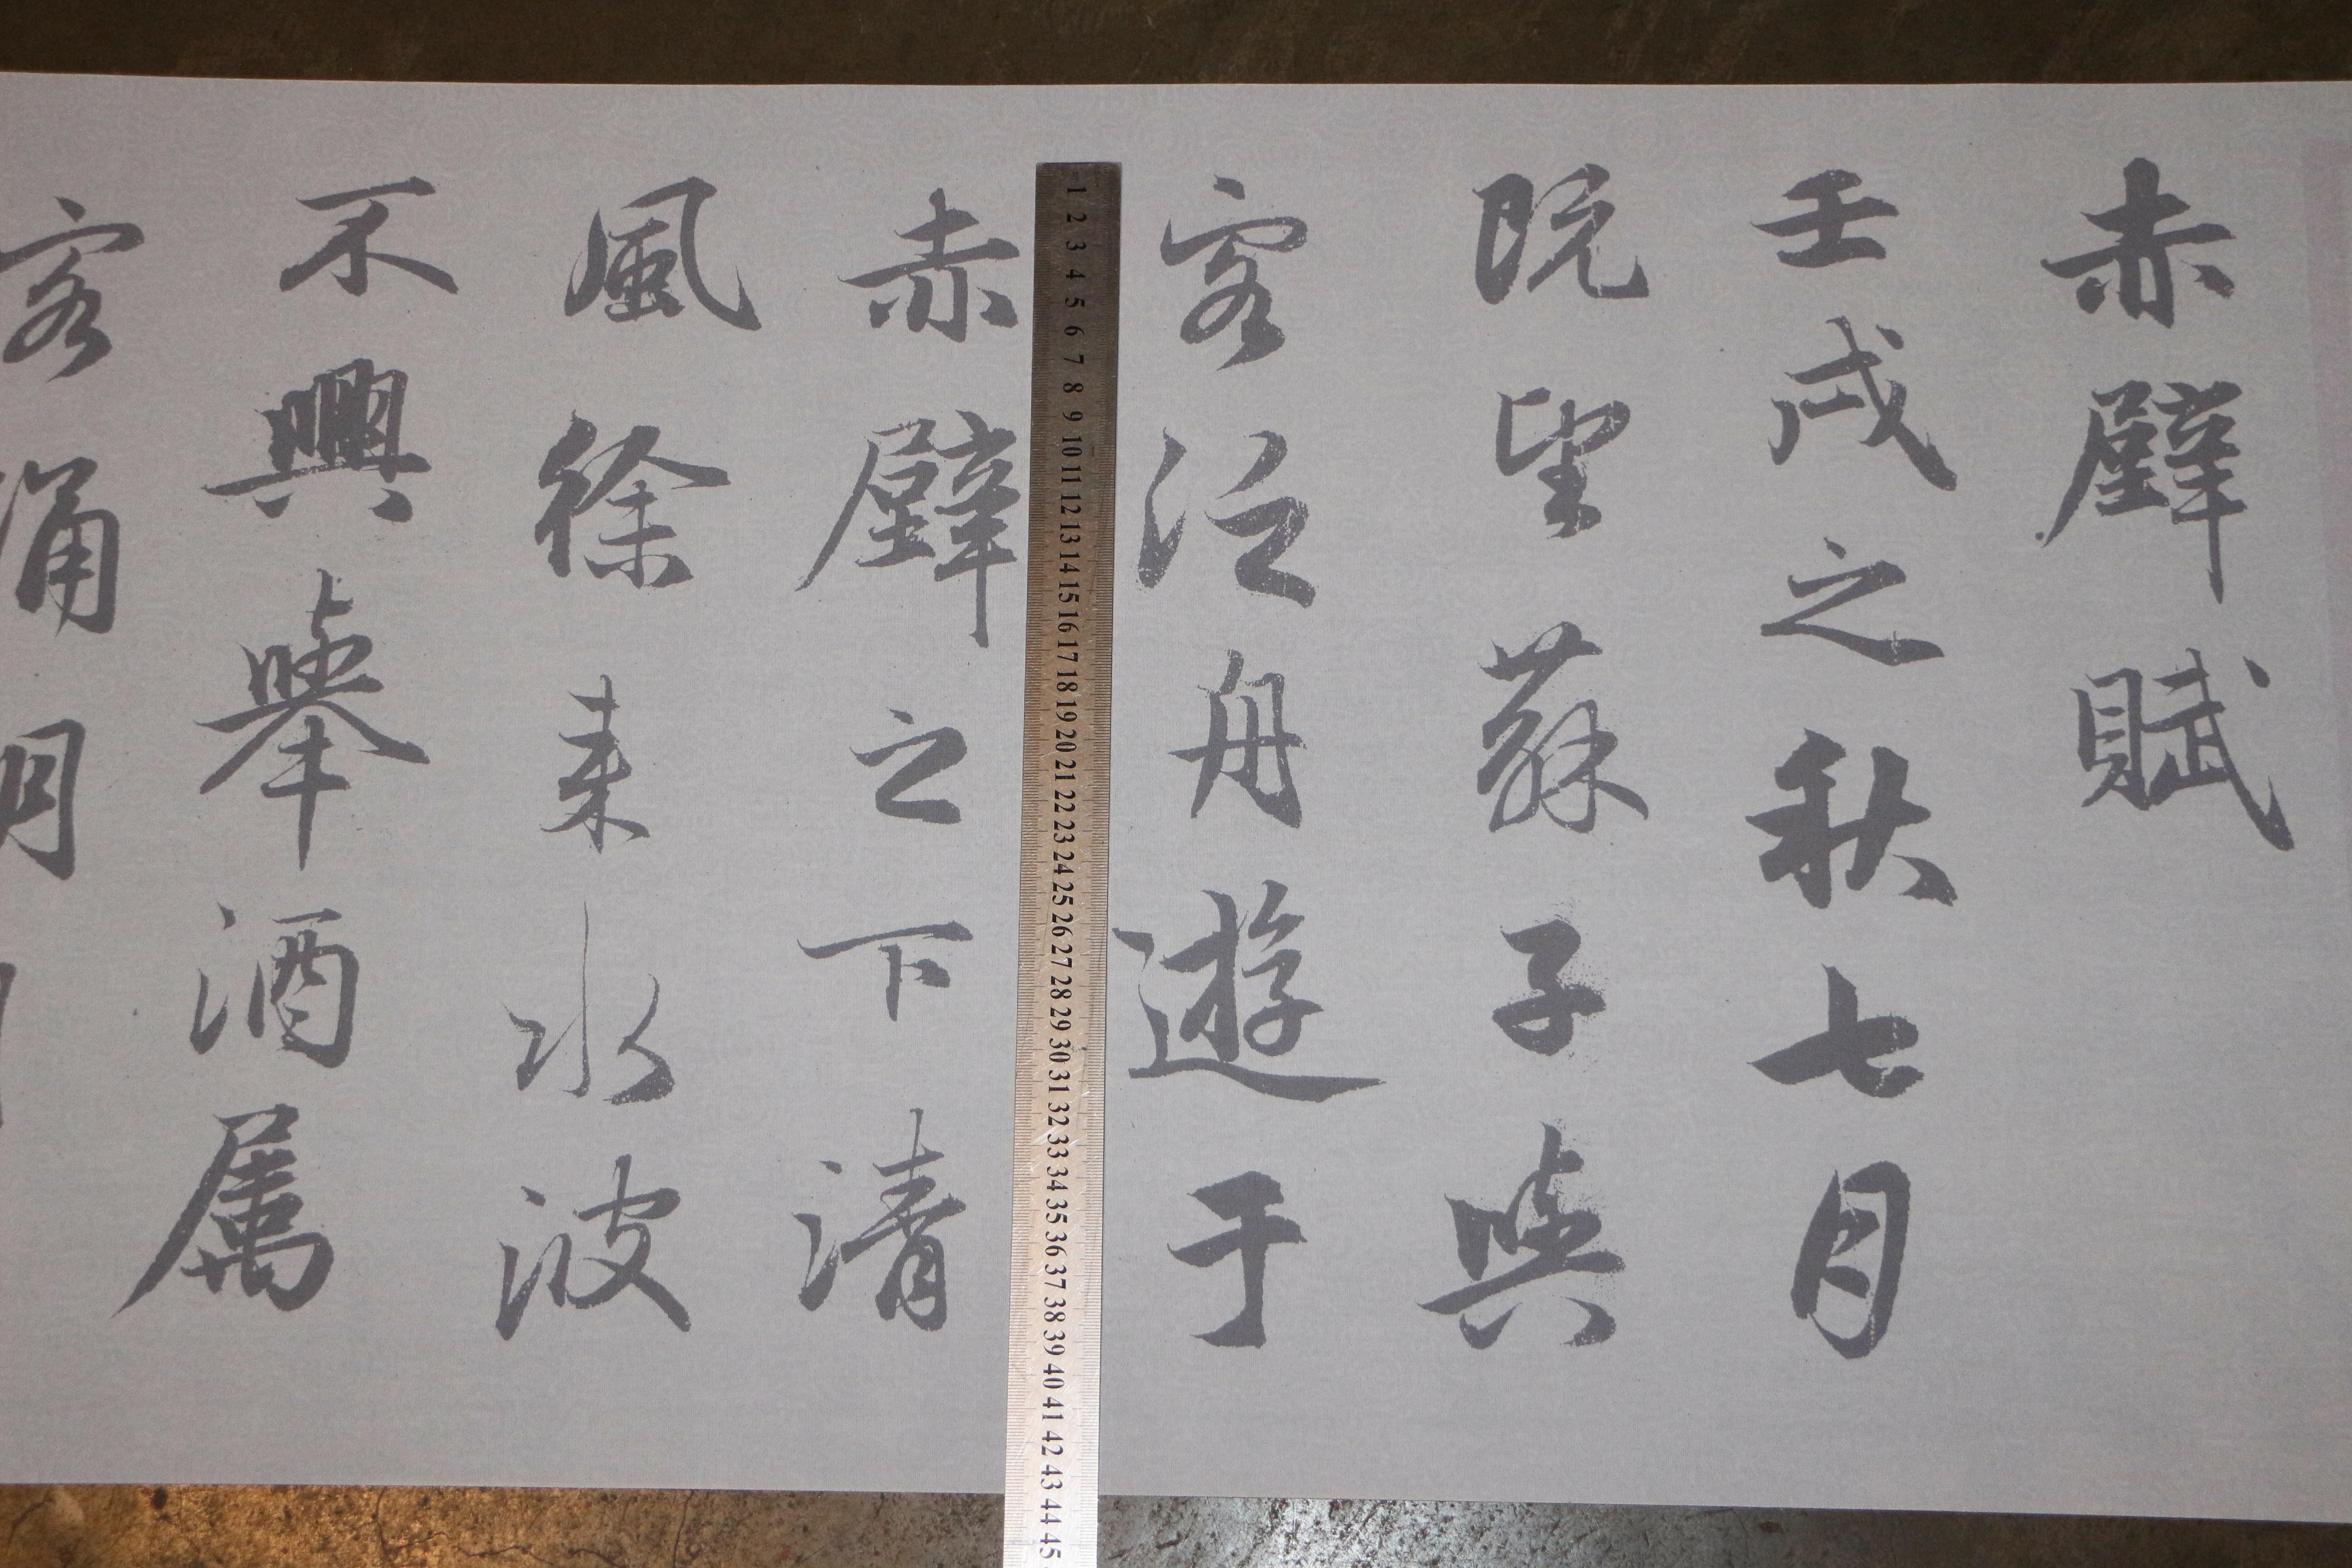 赤壁賦
壬戌之秋七月
既望蘇子與
客泛舟遊于
赤壁之下清
風徐来水波
不興舉酒属
客誦明
1 2 3 4 5 6 7 8 9 10 11 12 13 14 15 16 17 18 19 20 21 22 23 24 25 26 27 28 29 30 31 32 33 34 35 36 37 38 39 40 41 42 43 44 45